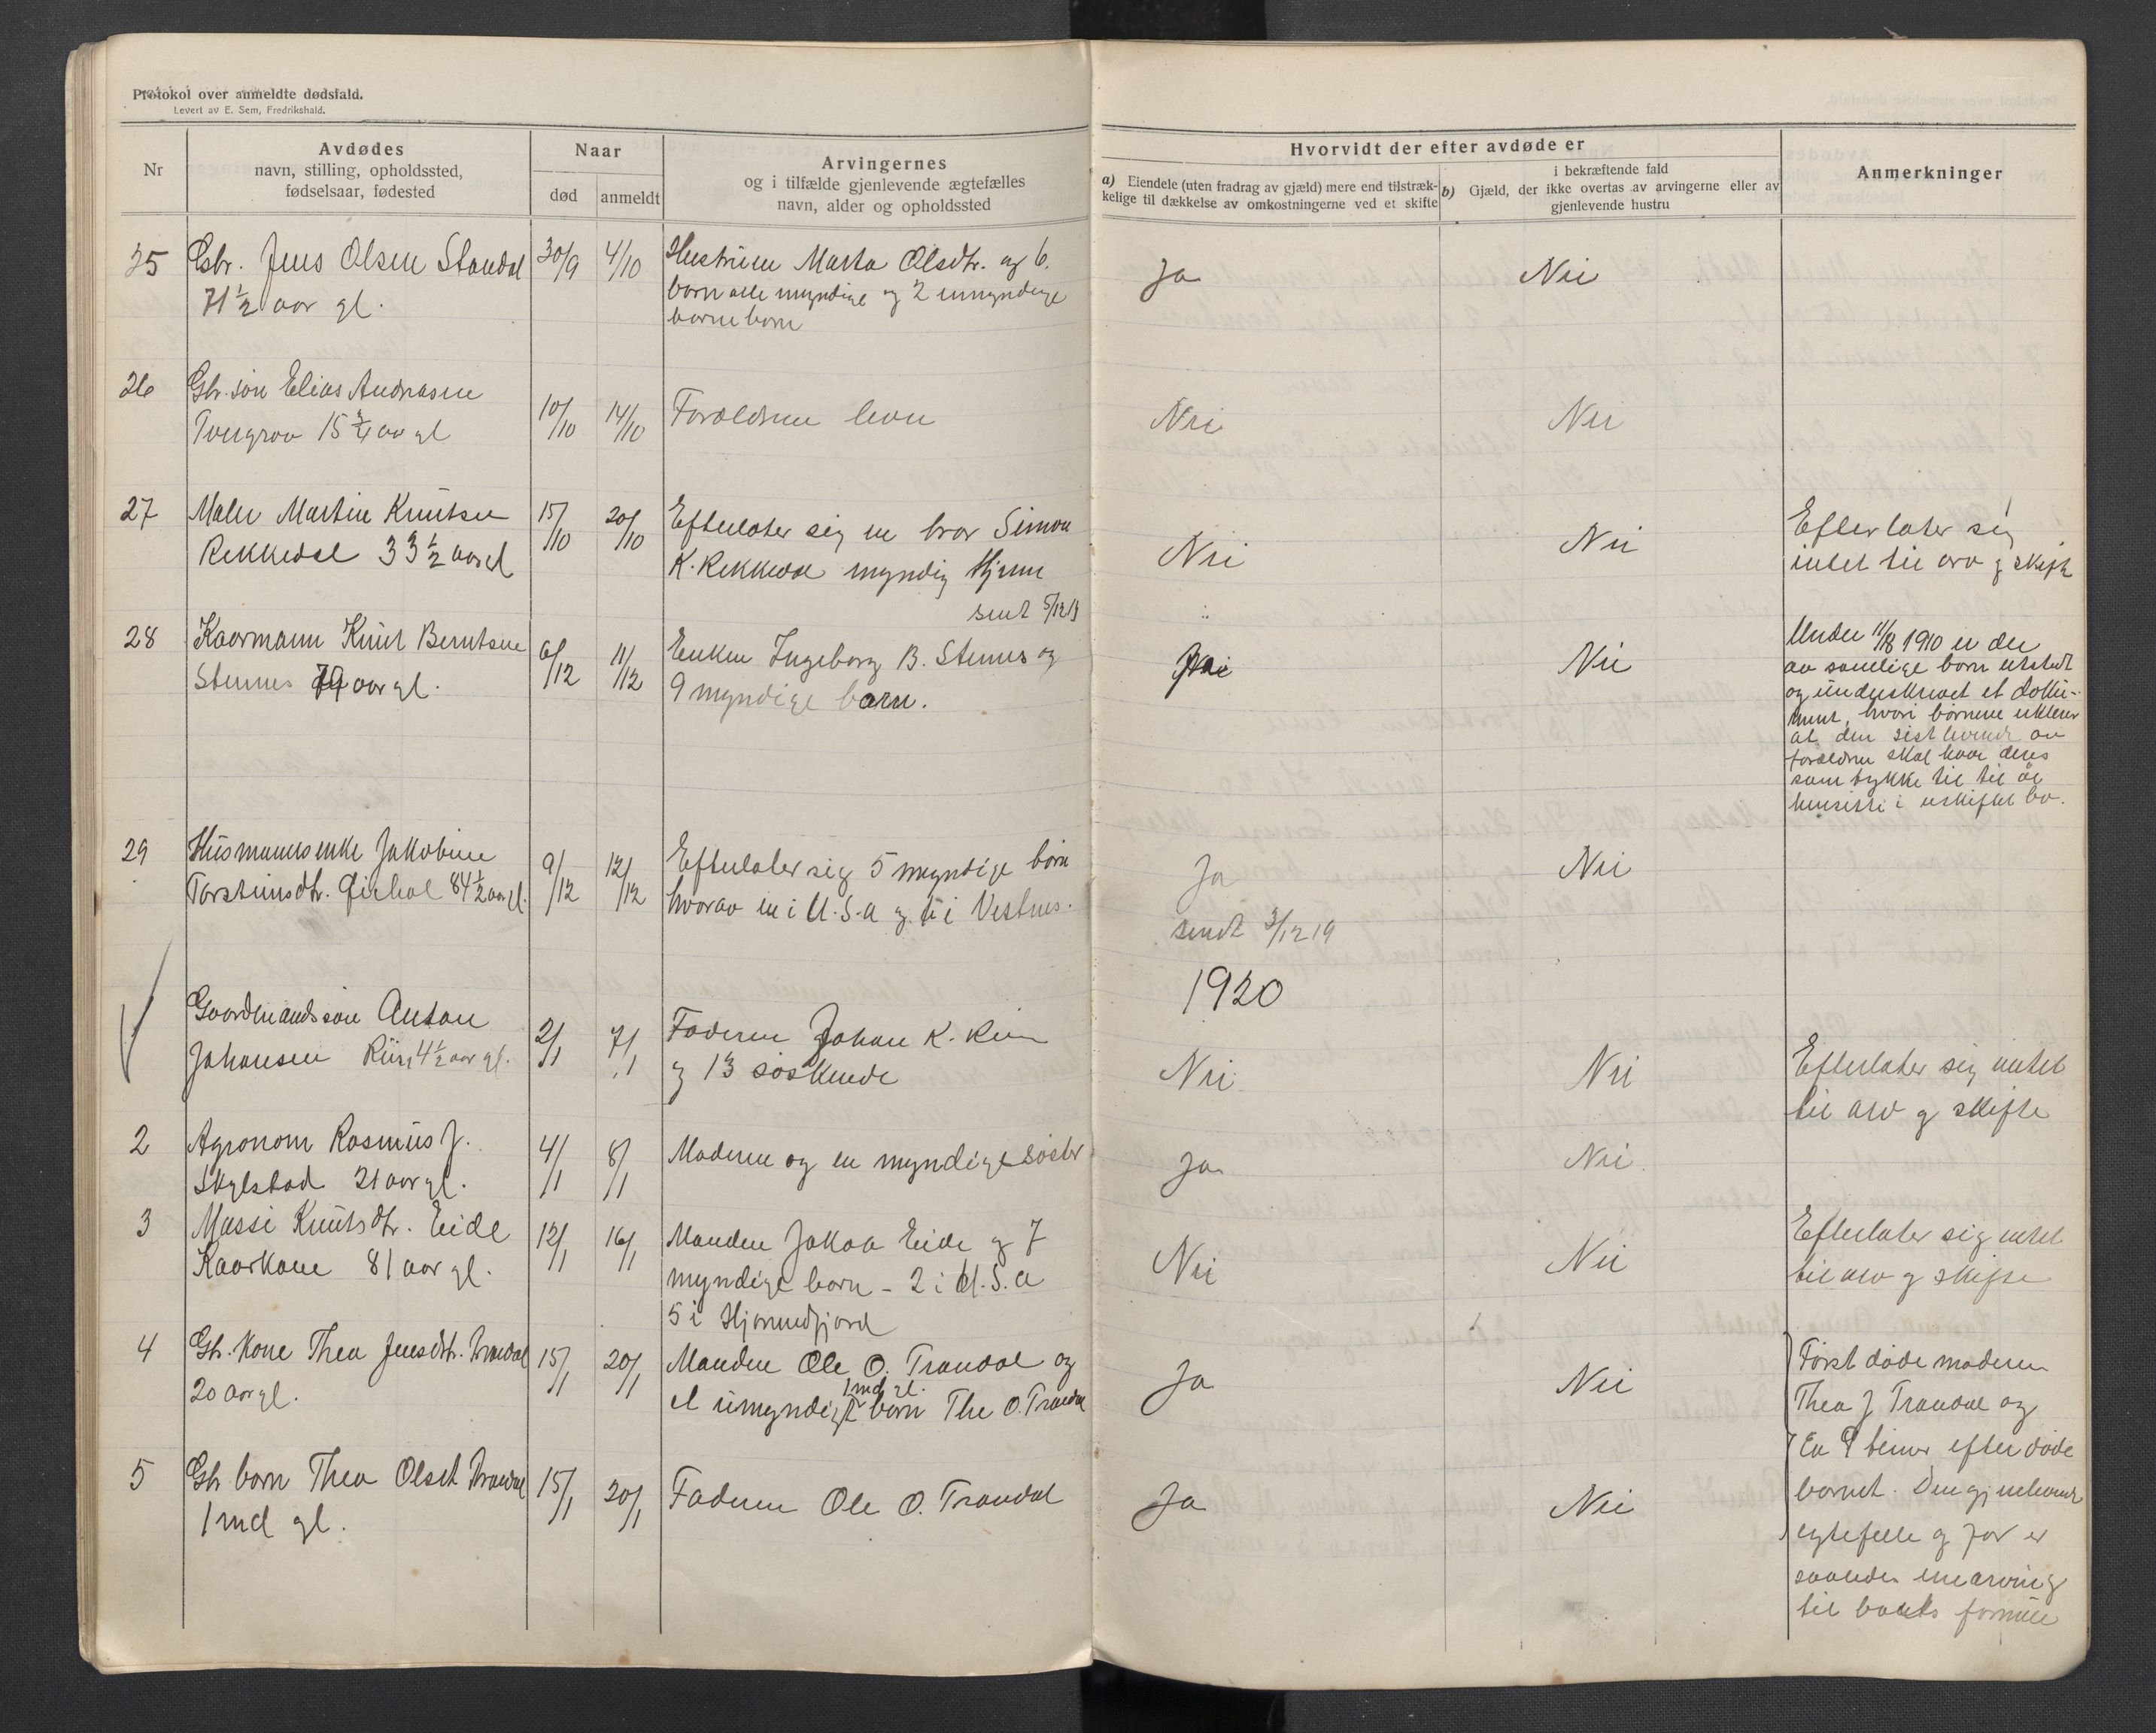 Protokol over anmeldte dødsfald.
Levert av E. Sem, Fredrikshald.
Nr
Avdødes
navn, stilling, opholdssted,
fødselsaar, fødested
Naar
død
anmeldt
Arvingernes
og i tilfælde gjenlevende ægtefælles
navn, alder og opholdssted
Hvorvidt der efter avdøde er
a) Eiendele (uten fradrag av gjæld) mere end tilstræk-
kelige til dækkelse av omkostningerne ved et skifte
i bekræftende fald
b) Gjæld, der ikke overtas av arvingerne eller av
gjenlevende hustru
Anmerkninger
25 Gbr. Jens Olsen Standal 30/9 4/10 Hustruen Marta Olsdtr. og 6
71 1/2 aar gl. børn alle myndige og 2 umyndige Ja Nei
barnebørn
26 Gbr. søn Elias Andreasen
15 3/4 aar gl 10/10 14/10 Forældrene lever Nei Nei
27 Maler Martin Knutsen 15/10 20/10 Efterlater sig en bror Simon Efterlater sig
Rekkedal 33 1/2 aar gl K. Rekkedal myndig Hjem Nei Nei intet til arv og skifte
sendt 5/12 19
28 Kaarmann Knut Berntsen 6/12 11/12 Enken Ingeborg B. Stennes og Nei Under 11/8 1910 er der
Stennes 79 aar gl. 9 myndige børn. av samtlige børn utstedt
og underskrevet et doku-
ment, hvori børnene erklærer
at den sist levende av
forældrene skal have deres
samtykke til til at
hensitte i uskiftet bo.
29 Husmannsenke Jakobine 9/12 12/12 Efterlater sig 5 myndige børn Ja Nei
Torsteinsdtr. 84 1/2 aar gl. hvorav en i U.S.A og en i Vestnes.
sendt 3/12 19
1920
Gaardmandssøn Anton 2/1 7/1 Faderen Johan K. Riise Efterlater sig intet
Johansen Riise 4 1/2 aar gl. og 13 søskende Nei Nei til arv og skifte
2 Agronom Rasmus J. 4/1 8/1 Moderen og en myndige søster Ja Nei
Skylstad 21 aar gl.
3 Massi Knutsdtr. Eide 12/1 16/1 Manden Jakob Eide og 7 Nei Nei Efterlater sig intet
Kaarkone 81 aar gl. myndige børn - 2 i U.S.A til arv og skifte
5 i Hjørundfjord
4 Gbr. kone Thea Jensdtr. Trandal 15/1 20/1 Manden Ole O. Trandal og Ja Nei Først døde moderen
20 aar gl. 1 md gl.
et umyndigt barn Thea O. Trandal Thea J Trandal og
Ca 9 timer efter døde
5 Gbr barn Thea Olsdt Trandal 15/1 20/1 Faderen Ole O. Trandal Ja Nei barnet. Den gjenlevende
1 md gl. egtefelle og far er
saaledes enearving
til boets formue